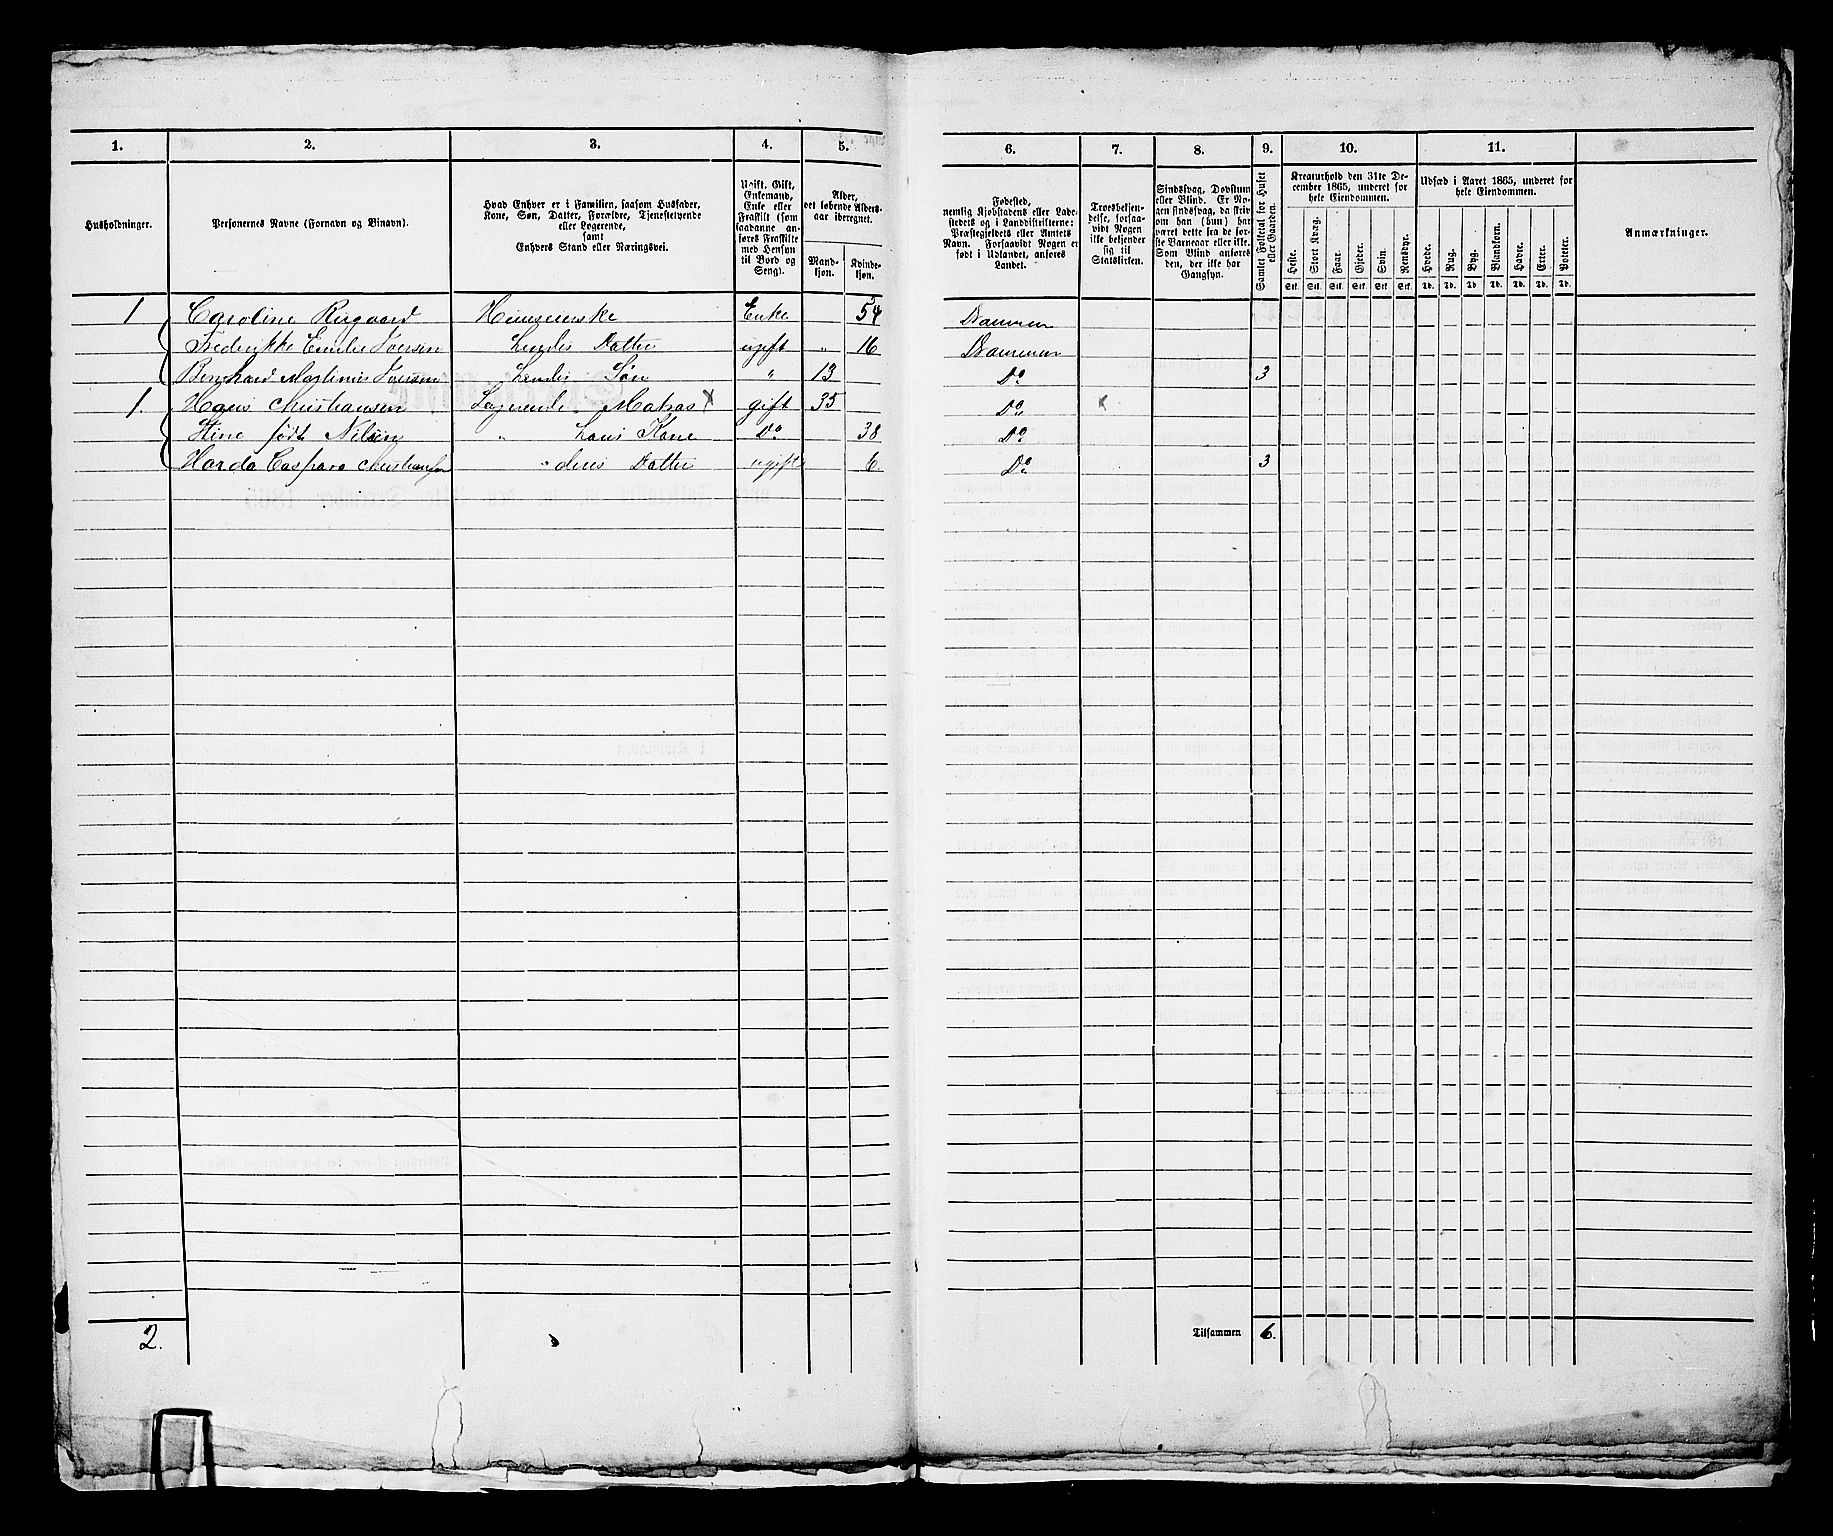 1. 2. 3. 4. 5.
Husholdninger.
Personernes Navne (Fornavn og Binavn).
Hvad Enhver er i Familien, saasom Husfader, Kone, Søn, Datter, Forældre, Tjenestetyende eller Logerende, samt Enhvers Stand eller Næringsvei.
Ugift, Gift, Enkemand, Enke eller Fraskilt (som saadanne anføres Fraskilte med Hensyn til Bord og Seng).
Alder, det løbende Aldersaar iberegnet.
Mandkjøn. Kvindekjøn.
6. 7. 8. 9. 10. 11.
Fødested, nemlig Kjøbstadens eller Ladestedets og i Landdistrikterne: Præstegjeldets eller Amtets Navn. Forsaavidt Nogen er født i Udlandet, anføres Landet.
Troesbekjendelse, forsaavidt Nogen ikke bekjender sig til Statskirken.
Sindssvag, Døvstum eller Blind. Er Nogen sindssvag, da skrives om han (hun) har været dette fra de første Barneaar eller ikke. Som Blind anføres den, der ikke har Gangsyn.
Samlet Folketal for Huset eller Gaarden.
Kreaturhold den 31te December 1865, underet for hele Eiendommen.
Heste. Stort Kvæg. Faar. Gjeder. Svin. Rensdyr.
Stk. Stk. Stk. Stk. Stk. Stk.
Udsæd i Aaret 1865, underet for hele Eiendommen.
Hvede. Rug. Byg. Blandkorn. Havre. Erter. Poteter.
Td. Td. Td. Td. Td. Td. Td.
Anmærkninger.
1 Caroline Enke 54 Drammen
Frederikke Emilie Iversen Hendes Datter ugift " 16 Drammen
Bernhard Iversen Hendes Søn " 13 Do 3
1. Hans Christiansen Logerende Matros X gift 35 Do x
Stine født Nilsen " Hans Kone Do 38 Do
Caspara Christiansen " deres Datter ugift 6 Do 3
2. Tilsammen 6.